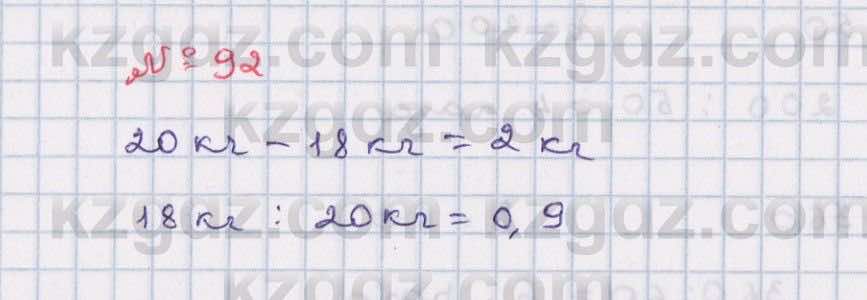 № 92
20 кг - 18 кг = 2 кг
18 кг : 20 кг = 0,9
kzgdz.com kzgdz.com
kzgdz.com
kzgdz.com kzgdz.com
kzgdz.com